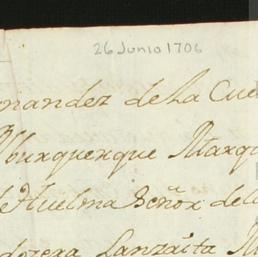 26 Junio 1706
rnandez de la Cue
Alburquerque Marqu
de Huelma Señor de la
Lanzaita